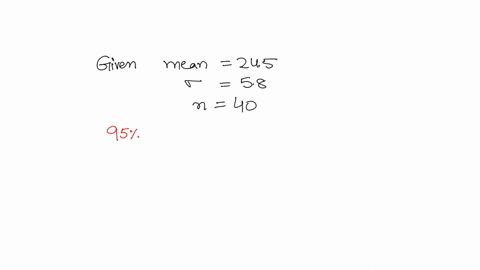 Given mean = 245
σ = 58
n = 40
95%